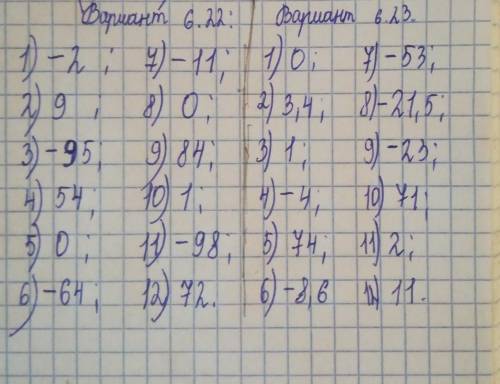 Вариант 6.22: Вариант 6.23.
1) -2 ; 7) -11; 1) 0; 7) -53;
2) 9 , 8) 0; 2) 3,4; 8) -21,5;
3) -95; 9) 84; 3) 1; 9) -23;
4) 54; 10) 1; 4) -4; 10) 71;
5) 0; 11) -98; 5) 74; 11) 2;
6) -64; 12) 72. 6) -8,6 12) 11.